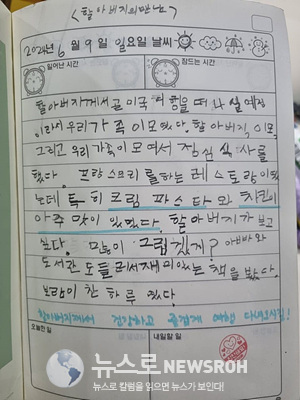 <할아버지의 만난>
2024년 6월 9일 일요일 날씨
일어난 시간 잠드는 시간
할아버지께서 곧 미국 여행을 떠나실 예정
이라서 우리 가족이 모였다. 할아버지, 이모,
그리고 우리 가족이 모여서 점심 식사를
했다. 프랑스 요리를 하는 레스토랑이었
는데 특히 크림 파스타와 치킨이
아주 맛이 있었다. 할아버지가 보고
싶다. 만능이 그립겠지? 아빠와
도서관도 들러서 재미있는 책을 봤다.
보람이 찬 하루 였다.
할아버지께서 건강하고 즐겁게 여행 다녀오시길!
오늘한 일 내일할 일
뉴스로 NEWSROH
뉴스로 칼럼을 읽으면 뉴스가 보인다!